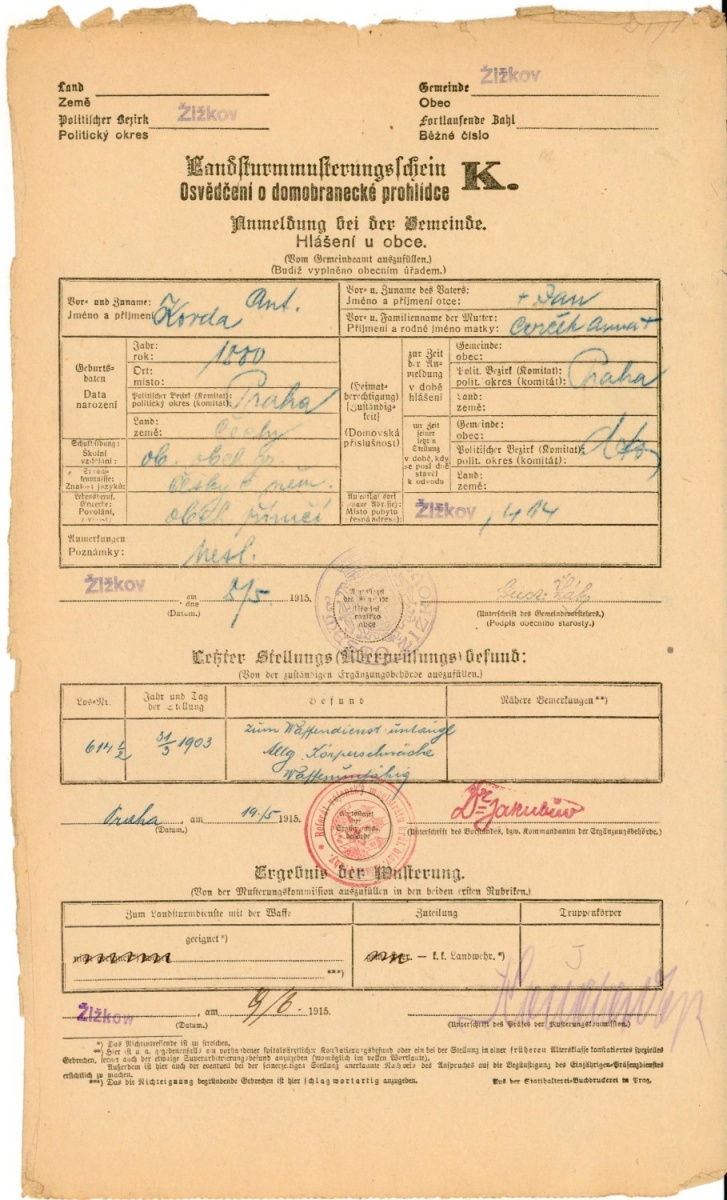 Land
Země
Gemeinde Žižkov
Obec
Politischer Bezirk Žižkov
Politický okres
Fortlaufende Zahl
Běžné číslo
Landsturmmusterungsschein K.
Osvědčení o domobranecké prohlídce
Anmeldung bei der Gemeinde.
Hlášení u obce.
(Vom Gemeindeamt auszufüllen.)
(Budiž vyplněno obecním úřadem.)
Vor- und Zuname:
Jméno a příjmení
Korda Ant.
Vor- u. Zuname des Vaters:
Jméno a příjmení otce:
+ Jan
Vor- u. Familienname der Mutter:
Příjmení a rodné jméno matky:
Anna +
Geburtsdaten
Data narození
Jahr:
rok:
1880
Ort:
místo:
Politischer Bezirk (Komitat):
politický okres (komitát):
Praha
Land:
země:
Čechy
(Heimatberechtigung)
[Zuständigkeit]
(Domovská příslušnost)
zur Zeit der Anmeldung
v době hlášení
Gemeinde:
obec:
Polit. Bezirk (Komitat):
polit. okres (komitát):
Praha
Land:
země:
zur Zeit seiner letzten Stellung
v době, kdy se posl. dostavel k odvodu
Gemeinde:
obec:
Politischer Bezirk (Komitat):
polit. okres (komitát):
dto
Land:
země:
Schulbildung:
Školní vzdělání:
ob.
Sprachkenntnisse:
Znalost jazyků:
česky + něm.
Lebensberuf,
Povolání,
Místo pobytu
Žižkov, 414
Anmerkungen:
Poznámky:
Žižkov am
dne 8/5 1915.
(Datum.)
(Unterschrift des Gemeindevorstehers.)
(Podpis obecního starosty.)
Letzter Stellungs(Überprüfungs)befund:
(Von der zuständigen Ergänzungsbehörde auszufüllen.)
Los-Nr.
Jahr und Tag der Stellung
Befund
Nähere Bemerkungen**)
614/2
31/3 1903
zum Waffendienst untaugl
Allg Körperschwäche
Waffenunfähig
Praha, am 19/5 1915.
(Datum.)
Dr Jakubův
(Unterschrift des Vorstandes, bzw. Kommandanten der Ergänzungsbehörde.)
Ergebnis der Musterung.
(Von der Musterungskommission auszufüllen in den beiden ersten Rubriken.)
Zum Landsturmdienste mit der Waffe
Zuteilung
Truppenkörper
geeignet*)
***)
— k.k. Landwehr.*)
Žižkov, am 9/6. 1915.
(Datum.)
(Unterschrift des Präses der Musterungskommission.)
*) Das Nichtzutreffende ist zu streichen.
**) Hier ist u. a. gegebenenfalls ein vorhandener spitalsärztlicher Konstatierungsbefund oder ein bei der Stellung in einer früheren Altersklasse konstatiertes spezielles
Gebrechen, ferner auch der etwaige Superarbitrierungsbefund anzugeben (womöglich im vollen Wortlaute).
Außerdem ist hier auch der eventuell bei der seinerzeitigen Stellung anerkannte Nachweis des Anspruches auf die Begünstigung des Einjährigen-Präsenzdienstes
ersichtlich zu machen.
***) Das die Nichteignung begründende Gebrechen ist hier schlagwortartig anzugeben.
Aus der Statthalterei-Buchdruckerei in Prag.